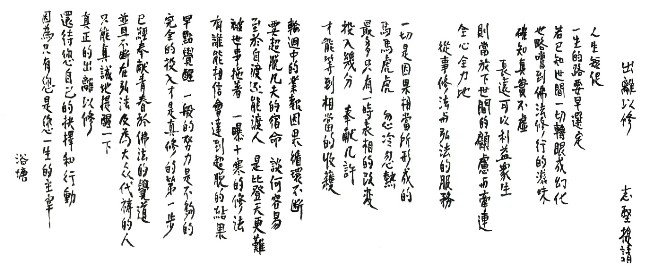 出離以修
志堅後請
人生短促
一生的路要早選定
若已知世間一切轉眼成幻化
也略嚐到佛法修行的滋味
確知真實不虛
長遠可以利益眾生
則當放下世間的顧慮而實進
全心全力地
從事修法而弘法的服務
一切是因果相當所形成的
馬馬虎虎 忽冷忽熱
最多只有一時表相的改變
投入幾分 奉獻幾許
才能等到相當的收穫
輪迴中的業報因果循環不斷
要超脫凡夫的宿命 談何容易
至於自渡還能渡人 是比登天更難
被世事拖著 一曝十寒的修法
有誰能相信會達到超脫的結果
早點覺醒 一般的努力是不夠的
完全的投入才是真修的第一步
已經奉獻青春於佛法的覺道
並且不斷在弘法及為大众代禱的人
只能真誠地提醒一下
真正的出離以修
還待您自己的抉擇和行動
因為只有您是您一生的主宰
浴塘